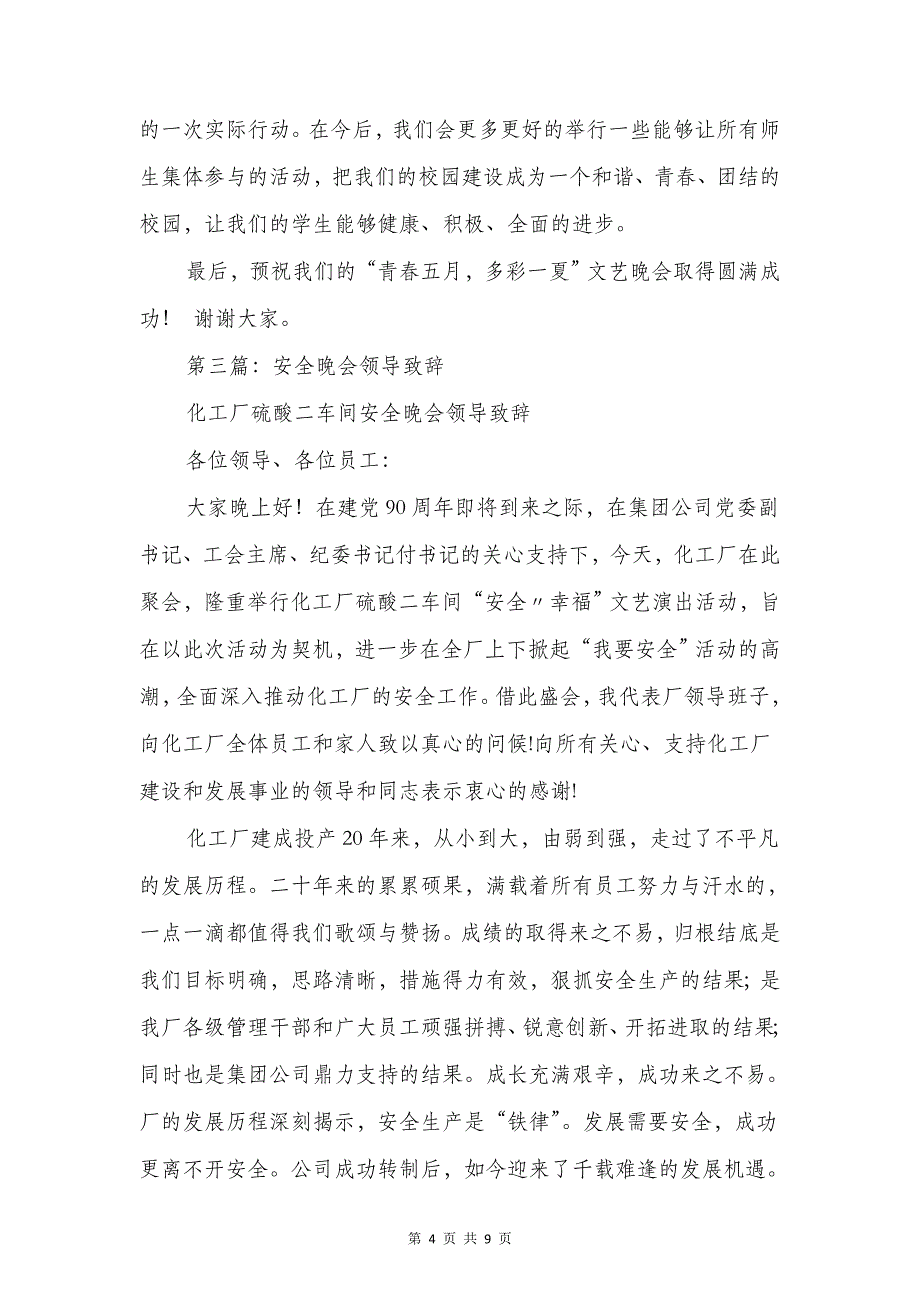 的一次实际行动。在今后，我们会更多更好的举行一些能够让所有师
生集体参与的活动，把我们的校园建设成为一个和谐、青春、团结的
校园，让我们的学生能够健康、积极、全面的进步。
最后，预祝我们的“青春五月，多彩一夏”文艺晚会取得圆满成
功！ 谢谢大家。
第三篇：安全晚会领导致辞
化工厂硫酸二车间安全晚会领导致辞
各位领导、各位员工：
大家晚上好！在建党 90 周年即将到来之际，在集团公司党委副
书记、工会主席、纪委书记付书记的关心支持下，今天，化工厂在此
聚会，隆重举行化工厂硫酸二车间“安全〃幸福”文艺演出活动，旨
在以此次活动为契机，进一步在全厂上下掀起“我要安全”活动的高
潮，全面深入推动化工厂的安全工作。借此盛会，我代表厂领导班子，
向化工厂全体员工和家人致以真心的问候!向所有关心、支持化工厂
建设和发展事业的领导和同志表示衷心的感谢!
化工厂建成投产 20 年来，从小到大，由弱到强，走过了不平凡
的发展历程。二十年来的累累硕果，满载着所有员工努力与汗水的，
一点一滴都值得我们歌颂与赞扬。成绩的取得来之不易，归根结底是
我们目标明确，思路清晰，措施得力有效，狠抓安全生产的结果；是
我厂各级管理干部和广大员工顽强拼搏、锐意创新、开拓进取的结果；
同时也是集团公司鼎力支持的结果。成长充满艰辛，成功来之不易。
厂的发展历程深刻揭示，安全生产是“铁律”。发展需要安全，成功
更离不开安全。公司成功转制后，如今迎来了千载难逢的发展机遇。
第 4 页 共 9 页